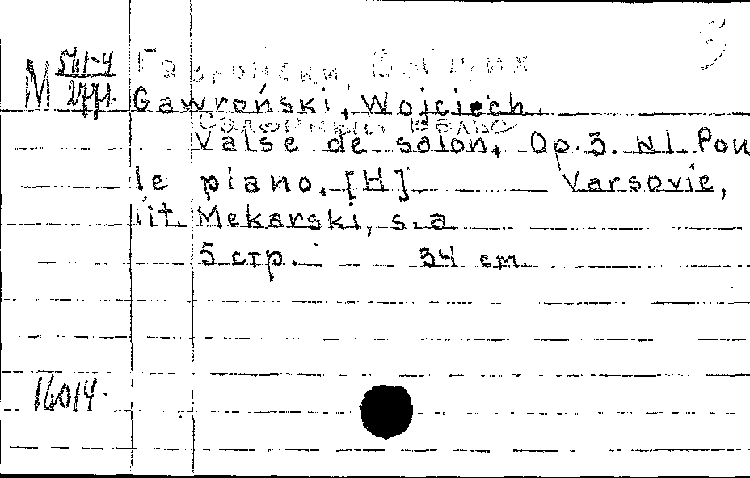 M 541-4 Гавроньски, Войцех 3
2771
Gawroński, Wojciech.
Салонный вальс
Valse de salon, Op. 3. N1. Pour
le piano. [Н] Varsovie,
lit. Mekarski, s.a
5 стр. 34 cm
16014.